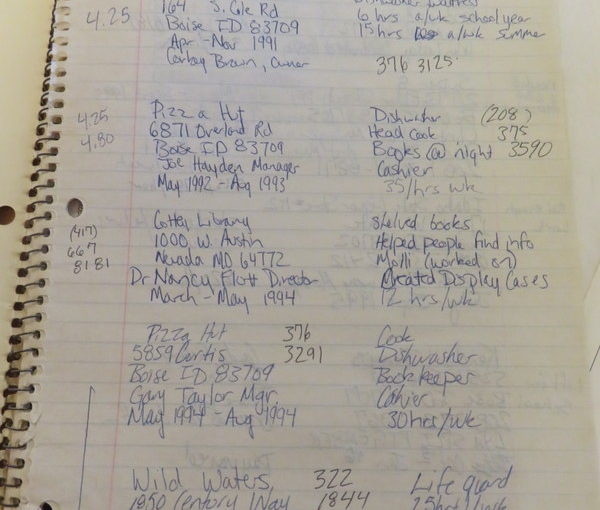 164 S. Cole Rd
Boise ID 83709
Apr - Nov 1991
Corbey Brown, Owner
4.25
Dishwasher Waitress
6 hrs a/wk school year
15 hrs a/wk summer
376 3125
4.25
4.80
Pizza Hut
6871 Overland Rd
Boise ID 83709
Joe Hayden Manager
May 1992 - Aug 1993
Dishwasher (208)
Head Cook 375
Books @ night 3590
Cashier
35/hrs wk
(417)
667
8181
Cottey Library
1000 W. Austin
Nevada MO 64772
Dr Nancy Flott Director
March - May 1994
Shelved books
Helped people find info
Molli (worked on)
Created Display Cases
12 hrs/wk
Pizza Hut 376
5859 Curtis 3291
Boise ID 83709
Gary Taylor Mgr.
May 1994 - Aug 1994
Cook
Dishwasher
Book keeper
Cashier
30 hrs/wk
Wild Waters, 322
1850 Century Way 1844
Life guard